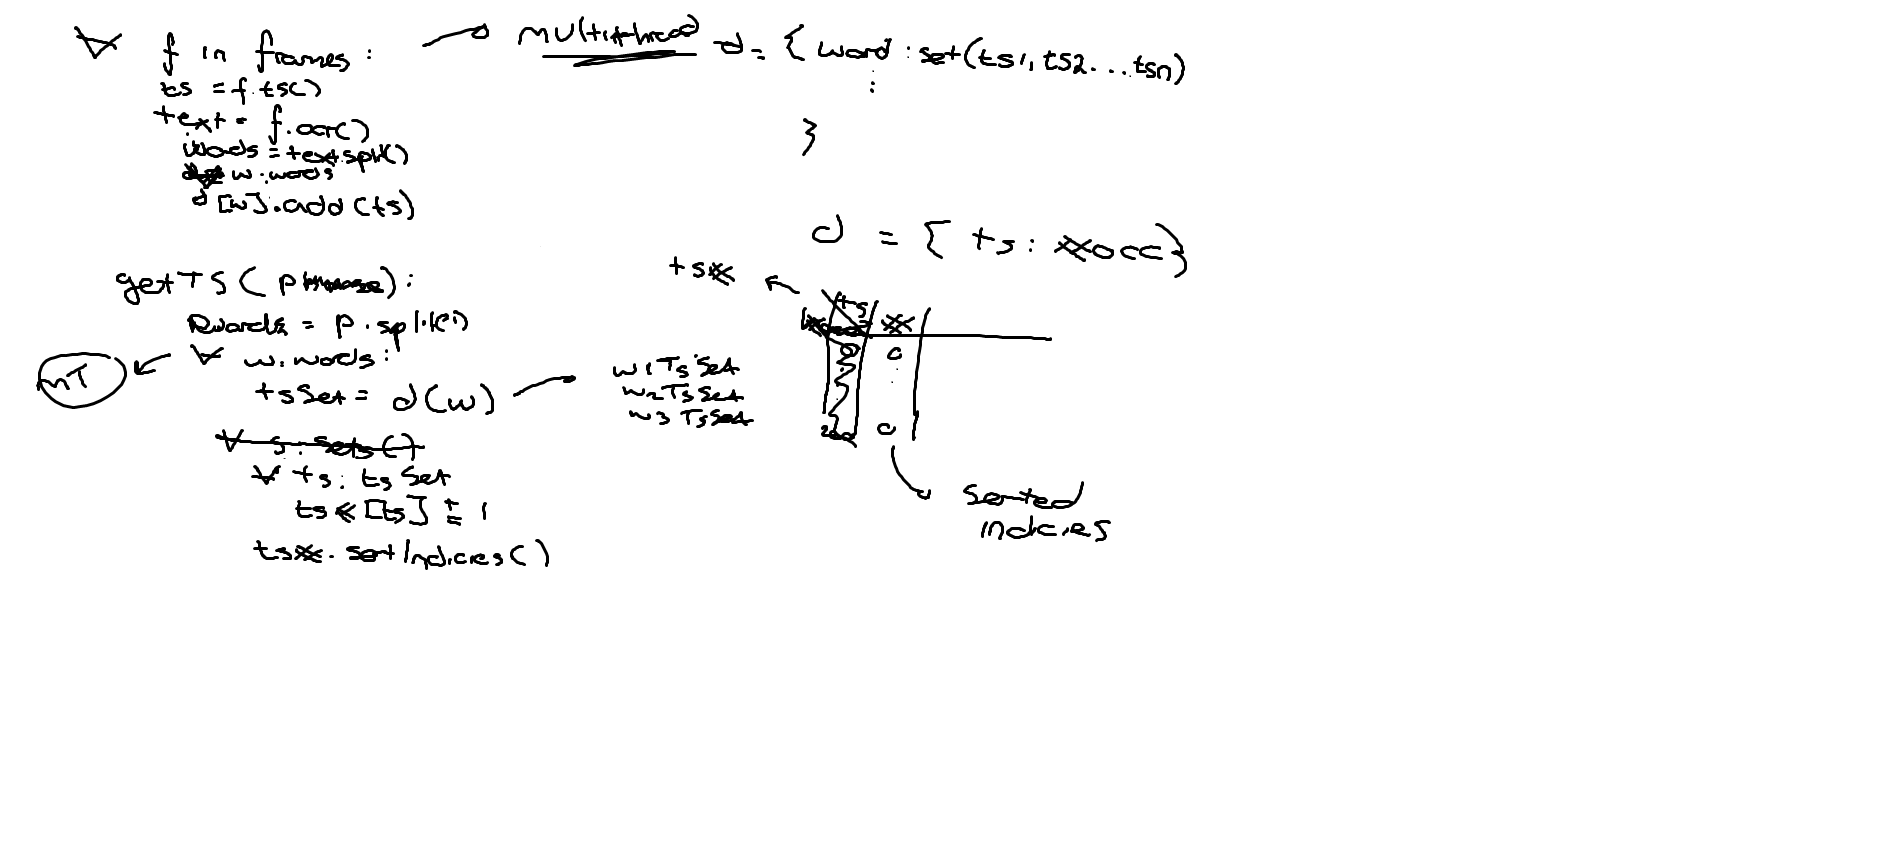 ∀ f in frames:
ts = f.ts()
text = f.ocr()
words = text.split()
w: words
d[w].add(ts)
multithread
d = { word : set(ts1, ts2...tsn)
:
}
d = { ts: #occ}
getTS(phrase):
words = p.split()
∀ w: words:
tsSet = d(w)
∀ s: sets()
∀ ts: tsSet
ts#[ts] += 1
ts#. sortIndicies()
MT
w1 TsSet
w2 TsSet
w3 TsSet
ts#
ts #
0 0
0
sorted
indicies